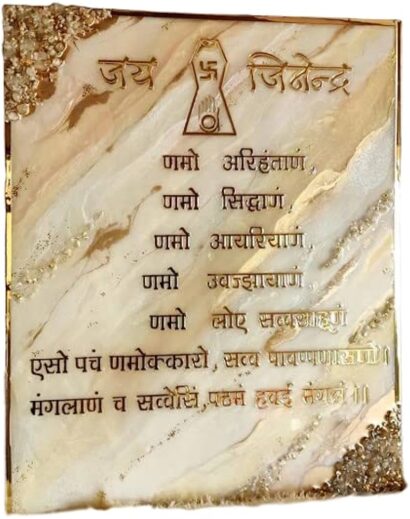 जय जिनेन्द्र
णमो अरिहंताणं,
णमो सिद्धाणं,
णमो आयरियाणं,
णमो उवज्झायाणं
णमो लोए सव्वसाहूणं
एसो पचं णमोक्कारो, सव्व पावप्पणासणो।
मंगलाणं च सव्वेसिं, पढमं हवई मंगलं।।